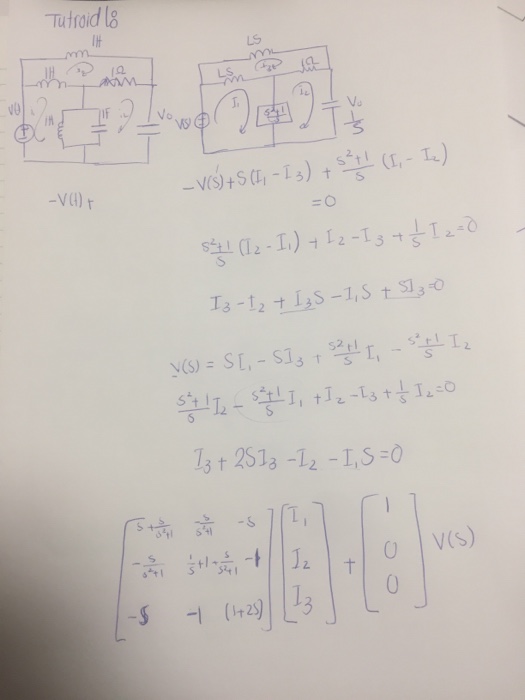 Tutroid 1:
1H
1H
I3
1Ω
V(t)
I1
1H
1F
I2
Vo
LS
LS
I3
1Ω
V(s)
I1
s²+1/s
I2
Vo
1/s
-V(t) +
-V(s) + S(I₁ - I₃) + s²+1/s (I₁ - I₂)
=0
s²+1/s (I₂ - I₁) + I₂ - I₃ + 1/s I₂ = 0
I₃ - I₂ + I₃S - I₁S + SI₃ = 0
V(s) = SI₁ - SI₃ + s²+1/s I₁ - s²+1/s I₂
s²+1/s I₂ - s²+1/s I₁ + I₂ - I₃ + 1/s I₂ = 0
I₃ + 2SI₃ - I₂ - I₁S = 0
[ s + s/s²+1 -s/s²+1 -s ] [ I₁ ] [ 1 ]
[ -s/s²+1 1/s + 1 + s/s²+1 -1 ] [ I₂ ] + [ 0 ] V(s)
[ -s -1 (1+2s) ] [ I₃ ] [ 0 ]